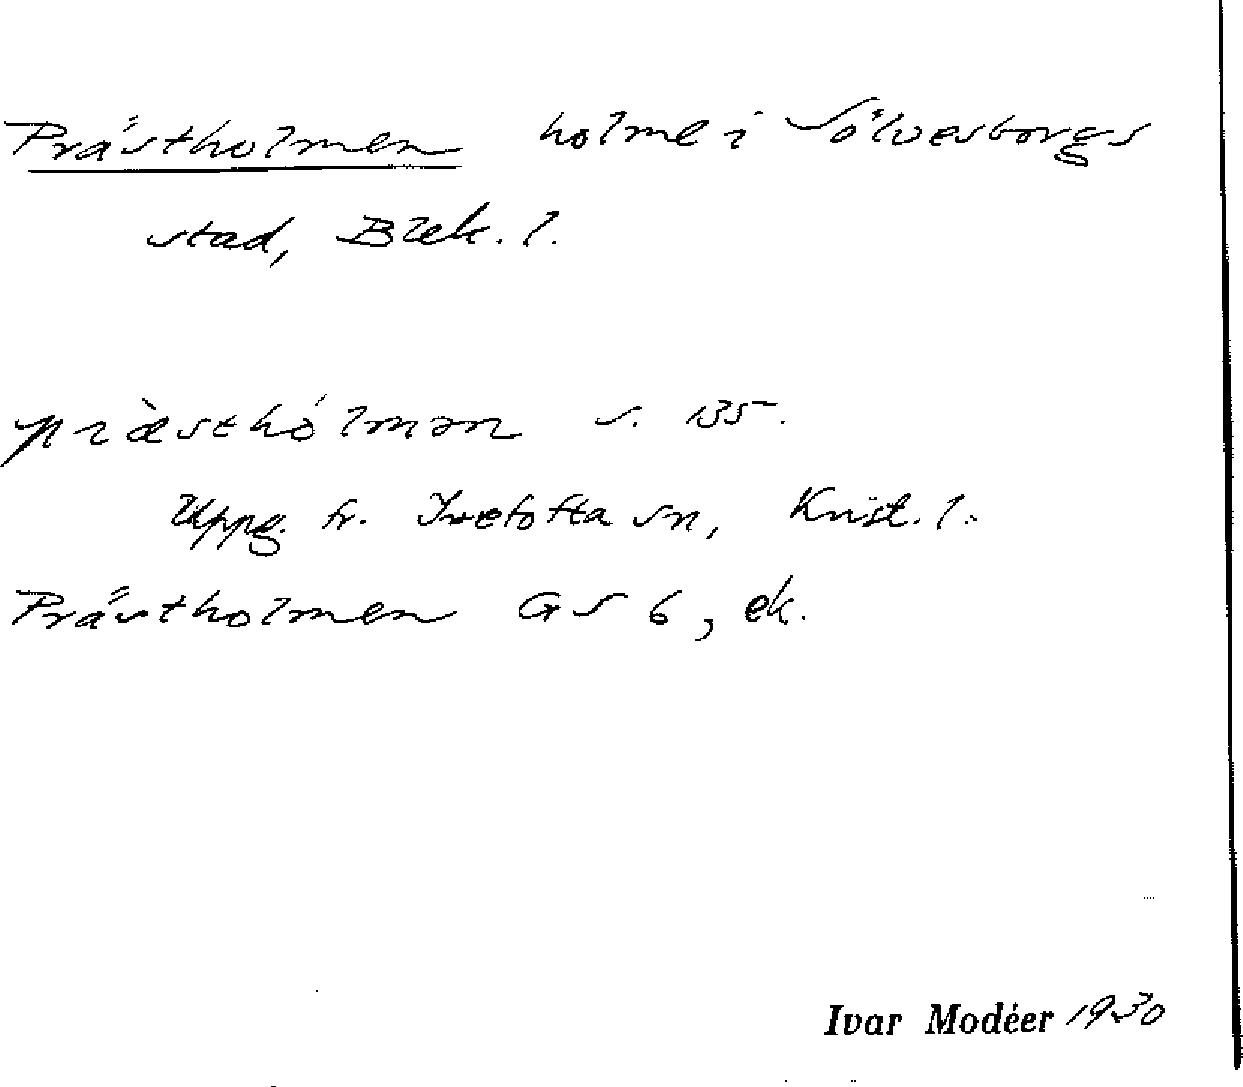 Prästholmen holme i Sölvesborgs
stad, Blek. l.
præ̀sthólmən s. 135.
Uppg. fr. Ivetofta sn, Krist. l.
Prästholmen GS 6, ek.
Ivar Modéer 1930